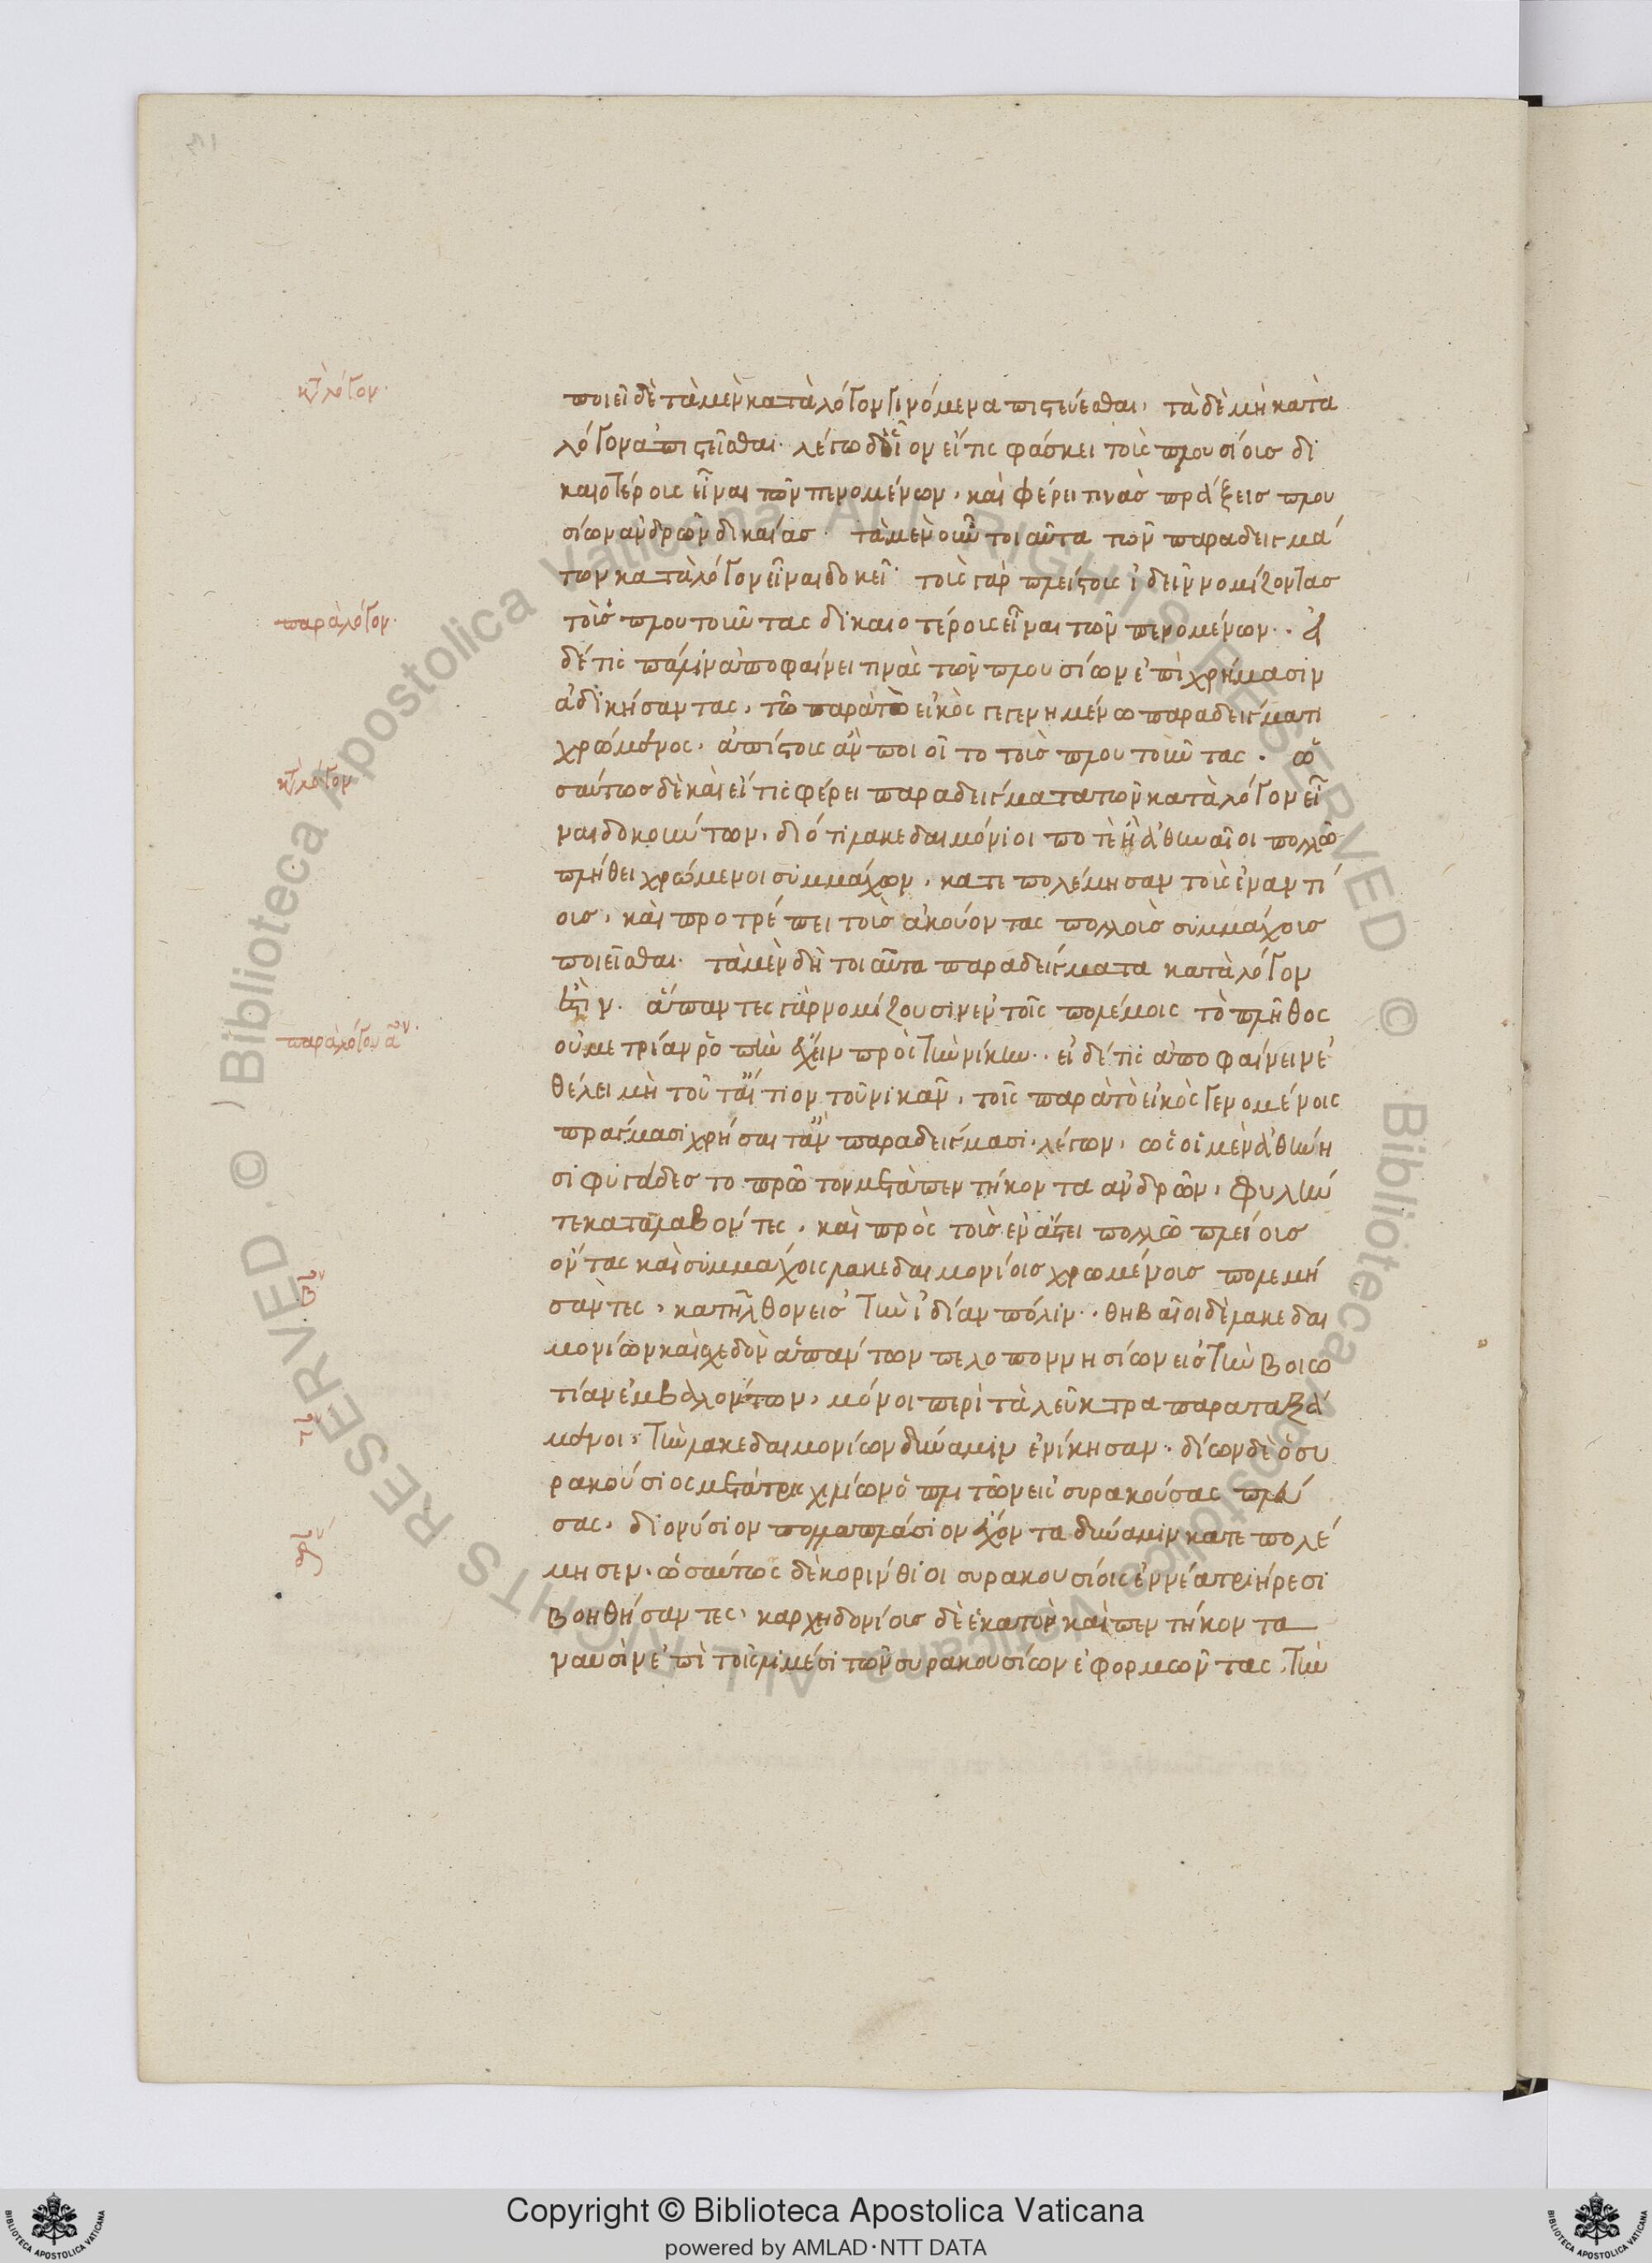 κ(α)τ(ὰ) λόγον.
ποιεῖ δὲ τὰ μὲν κατὰ λόγον γινόμενα πιστεύεσθαι, τὰ δὲ μὴ κατὰ
λόγον ἀπιστεῖσθαι. λέγω δ οἷον εἴ τις φάσκει τοὺς πλουσίους δι
καιοτέρους εἶναι τῶν πενομένων, καὶ φέρει τινὰς πράξεις πλου
σίων ἀνδρῶν δικαίας. τὰ μὲν οὖν τοιαῦτα τῶν παραδειγμά
των κατὰ λόγον εἶναι δοκεῖ. τοὺς γὰρ πλείστους ἰδεῖν νομίζοντας
παράλογον.
τοὺς πλουτοῦντας δικαιοτέρους εἶναι τῶν πενομένων. εἰ
δέ τις πάλιν ἀποφαίνει τινὰς τῶν πλουσίων ἐπὶ χρήμασιν
ἀδικήσαντας, τῷ παρὰ τὸ εἰκὸς γεγενημένω παραδείγματι
χρώμενος, ἀπίστους ἂν ποιοῖτο τοὺς πλουτοῦντας. ὡ
κ(α)τ(ὰ) λόγον
σαύτως δὲ καὶ εἴ τις φέρει παραδείγματα τῶν κατὰ λόγον εἶ
ναι δοκούντων, διότι λακεδαιμόνιοι ποτὲ ἢ ἀθηναῖοι πολλῶ
πλήθει χρώμενοι συμμάχων, κατεπολέμησαν τοὺς ἐναντί
ους, καὶ προτρέπει τοὺς ἀκούοντας πολλοὺς συμμάχους
ποιεῖσθαι. τὰ μὲν δὴ τοιαῦτα παραδείγματα κατὰ λόγον
ἐστίν. ἅπαντες γὰρ νομίζουσιν ἐν τοῖς πολέμοις τὸ πλῆθος
παράλογον α ον.
οὐ μετρίαν ῥοπὴν ἔχειν πρὸς τὴν νίκην. εἰ δέ τις ἀποφαίνειν ἐ
θέλει μὴ τοῦτ αἴτιον τοῦ νικᾶν, τοῖς παρὰ τὸ εἰκὸς γενομένοις
πράγμασι χρήσαιτ ἂν παραδείγμασι, λέγων, ὡς οἱ μὲν ἀθήνη
σι φυγάδες τὸ πρῶτον μετὰ πεντήκοντα ἀνδρῶν, φυλήν
τε καταλαβόντες, καὶ πρὸς τοὺς ἐν ἄστει πολλῶ πλείους
ὄντας καὶ συμμάχοις λακεδαιμονίοις χρωμένους πολεμή
β ον
σαντες, κατῆλθον εἰς τὴν ἰδίαν πόλιν. θηβαῖοι δὲ λακεδαι
μονίων καὶ σχεδὸν ἁπάντων πελοποννησίων εἰς τὴν βοιω
τίαν ἐμβαλόντων, μόνοι περὶ τὰ λεῦκτρα παραταξά
γ ον
μενοι, τὴν λακεδαιμονίων δύναμιν ἐνίκησαν. δίων δὲ ὁ συ
ρακούσιος μετὰ τρισχιλίων ὁπλιτῶν εἰς συρακούσας πλεύ
σας, διονύσιον πολλαπλάσιον ἔχοντα δύναμιν κατεπολέ
δ ον
μησεν. ὡσαύτως δὲ κορίνθιοι συρακουσίοις ἐννέα τριήρεσι
βοηθήσαντες, καρχηδονίους δὲ ἑκατὸν καὶ πεντήκοντα
ναυσὶν ἐπὶ τοῖς λιμέσι τῶν συρακουσίων ἐφορμῶντας, τὴν
Copyright © Biblioteca Apostolica Vaticana
powered by AMLAD·NTT DATA